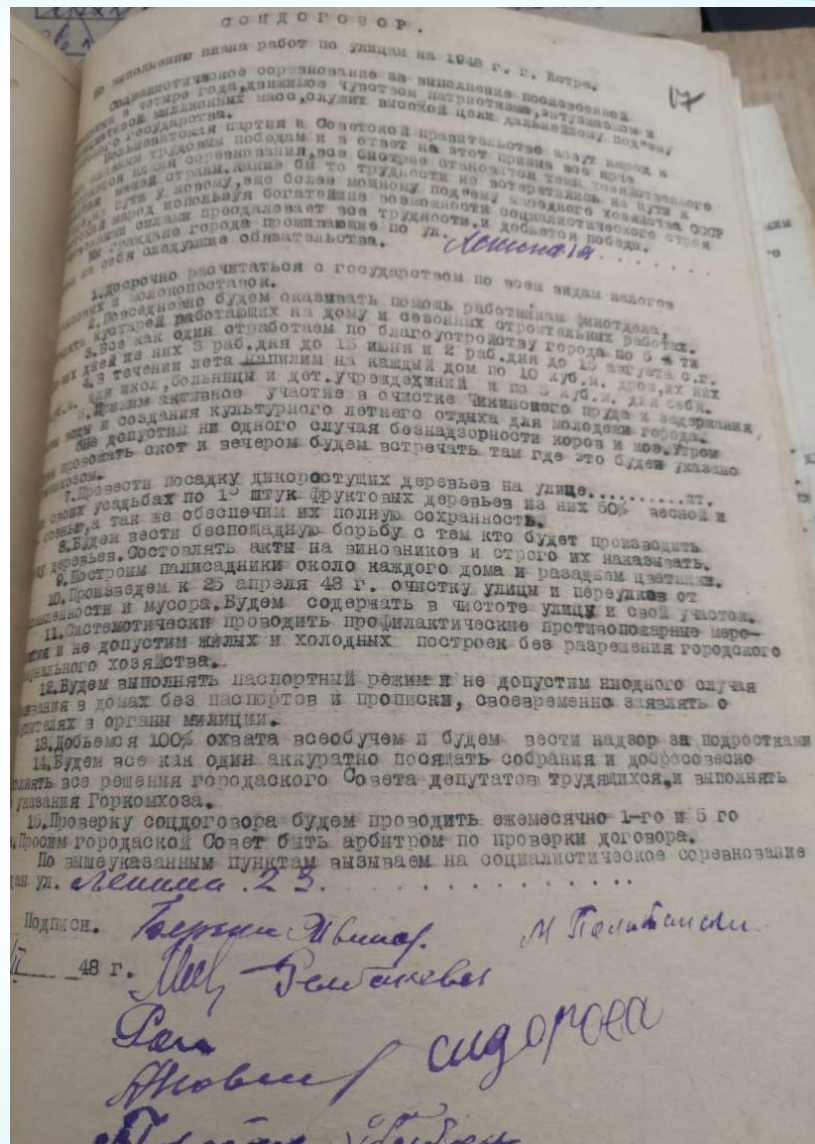 СОЦДОГОВОР.
По выполнению плана работ по улицам на 1948 г. г. Истра.
17
Социалистическое соревнование за выполнение послевоенной
в четыре года, движимое чувством патриотизма, энтузиазмом и
миллионных масс, служит высокой цели дальнейшему под"ему
государства.
Большевистская партия и Советское правительство зовут народ к
трудовым победам и в ответ на этот призыв все ярче
пламя соревнования, все быстрее становится темп хозяйственного
нашей страны. Какие бы то трудности не встретились на пути к
пути к новому, еще более мощному под"ему народного хозяйства СССР
народ используя богатейшие возможности социалистического строя
силами преодалевает все трудности и добьется победы.
Мы граждане города проживающие по ул. ........
на себя следующие обязательства.
1. Досрочно расчитаться с государством по всем видам налогов
и молокопоставок.
2. Повседневно будем оказывать помощь работникам финотдела,
кустарей работающих на дому и сезонных строительных работах.
3. Все как один отработаем по благоустройству города по 5-ти
дней из них 3 раб.дня до 15 июня и 2 раб.дня до 15 августа с.г.
4. В течении лета напилим на каждый дом по 10 куб.м. дров, их них
для школ, больницы и дет.учреждединий и по 5 куб.м. для себя.
5. Примем активное участие в очистке Чикинского пруда и задержания
воды и создания культурного летнего отдыха для молодежи города.
6 Не допустим ни одного случая безнадзорности коров и коз. Утром
провожать скот к вечером будем встречать там где это будет указано
7. Провести посадку дикоростущих деревьев на улице..........шт.
своих усадьбах по 10 штук фруктовых деревьев из них 50% весной и
осенью, а так же обеспечим их полную сохранность.
8. Будем вести беспощадную борьбу с тем кто будет производить
деревьев. Состовлять акты на виновников и строго их наказывать.
9. Построим палисадники около каждого дома и разадьем цветники.
10. Произведем к 25 апреля 48 г. очистку улицы и переулков от
и мусора. Будем содержать в чистоте улицу и свой участок.
11. Системотически проводить профилактические противопожарные меро-
и не допустим жилых и холодных построек без разрешения городского
хозяйства.
12. Будем выполнять паспортный режим и не допустим ниодного случая
в домах без паспортов и прописки, своевременно заявлять о
в органы милиции.
13. Добьемся 100% охвата всеобучем и будем вести надзор за подростками
14. Будем все как один аккуратно посящать собрания и добросовесно
все решения городаского Совета депутатов трудящихся, и выполнять
указания Горкомхоза.
15. Проверку соцдоговора будем проводить ежемесячно 1-го и 5 го
Просим городаской Совет быть арбитром по проверки договора.
По вышеуказанным пунктам вызываем на социалистическое соревнование
ул. Ленина 23. . . . . . . . . . . .
Подписи.
48 г.
сидорова